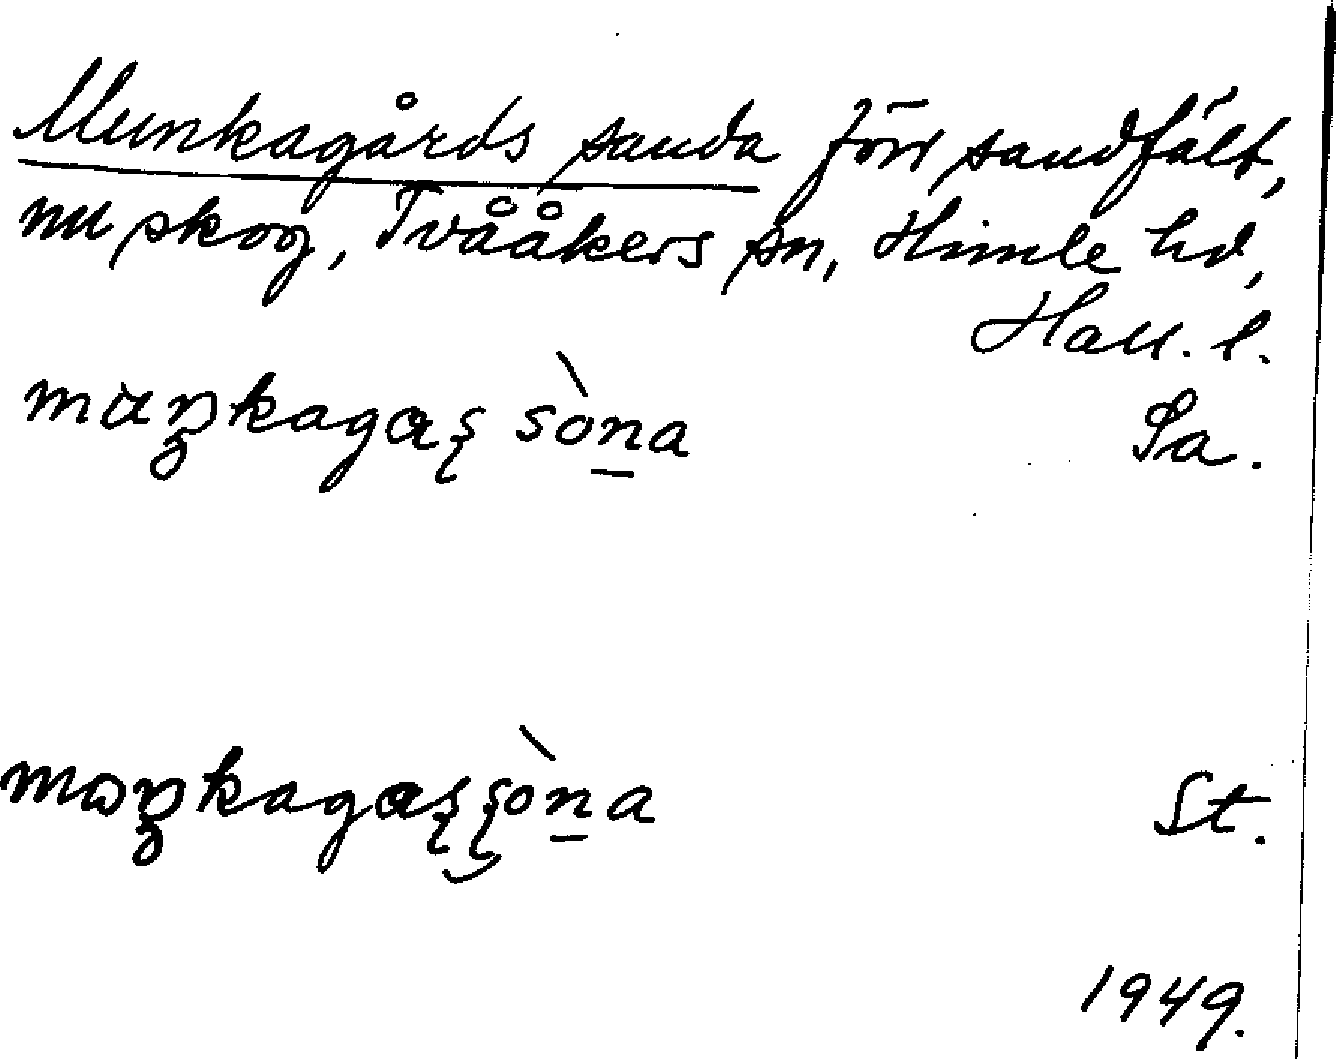 Munkagårds sanda förr sandfält,
nu skog, Tvååkers sn, Himle hd,
Hall. l.
muŋkagaʂ sòna Sa.
mɷŋkagaʂʂòna St.
1949.